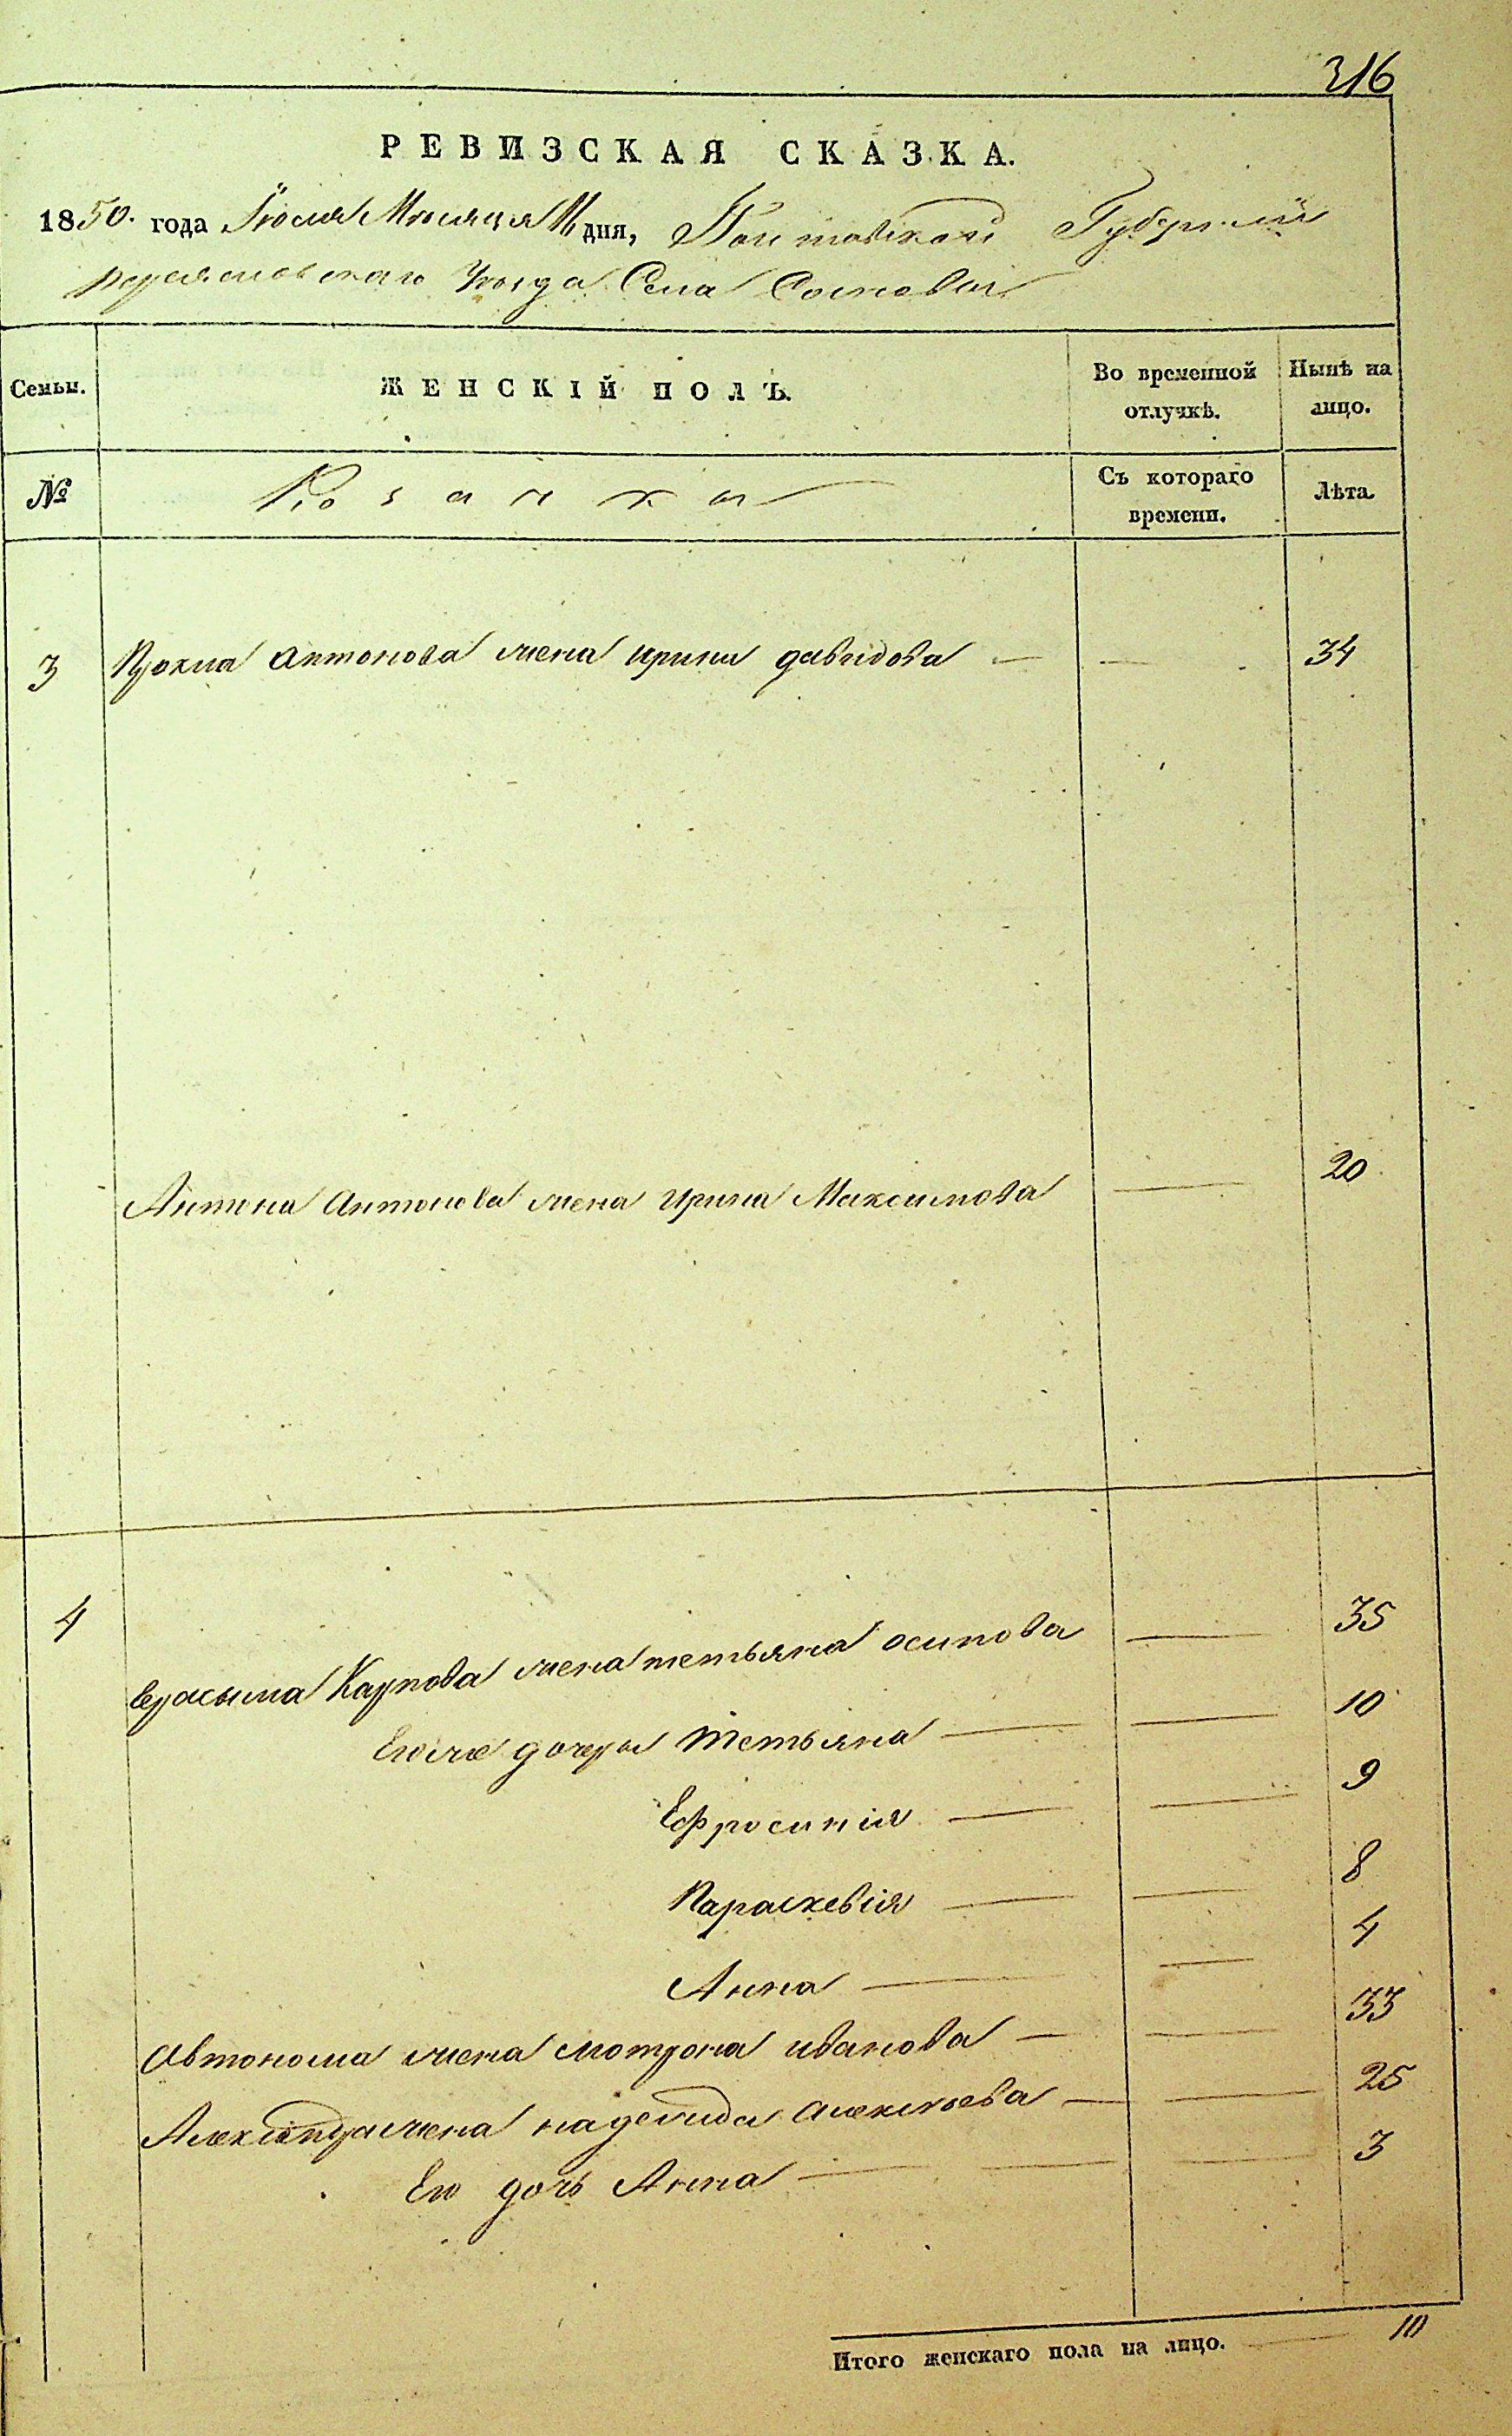 316
РЕВИЗСКАЯ СКАЗКА.
1850. года Іюля Месяца 16 дня, Полтавской Губерніи
Переяславскаго Уезда Села Сосновы
Семьи.
ЖЕНСКІЙ ПОЛЪ.
Во временной отлучкѣ.
Нынѣ на лицо.
№
Козачки
Съ котораго времени.
Лѣта.
3 Прокпа Антонова жена Ирина Давидова — — 34
Антона Антонова жена Ирина Максимова — 20
4 Герасыма Карпова жена тетьяна осипова — 35
Егоже дочеры Тетьяна — — 10
Ефросинія — — 9
Параскевія — — 8
Анна — — 4
Автонома жена мотрона иванова — — 33
Александра жена надежида Алексеева — — 25
Его дочь Анна — — — 3
Итого женскаго пола на лицо. — 10